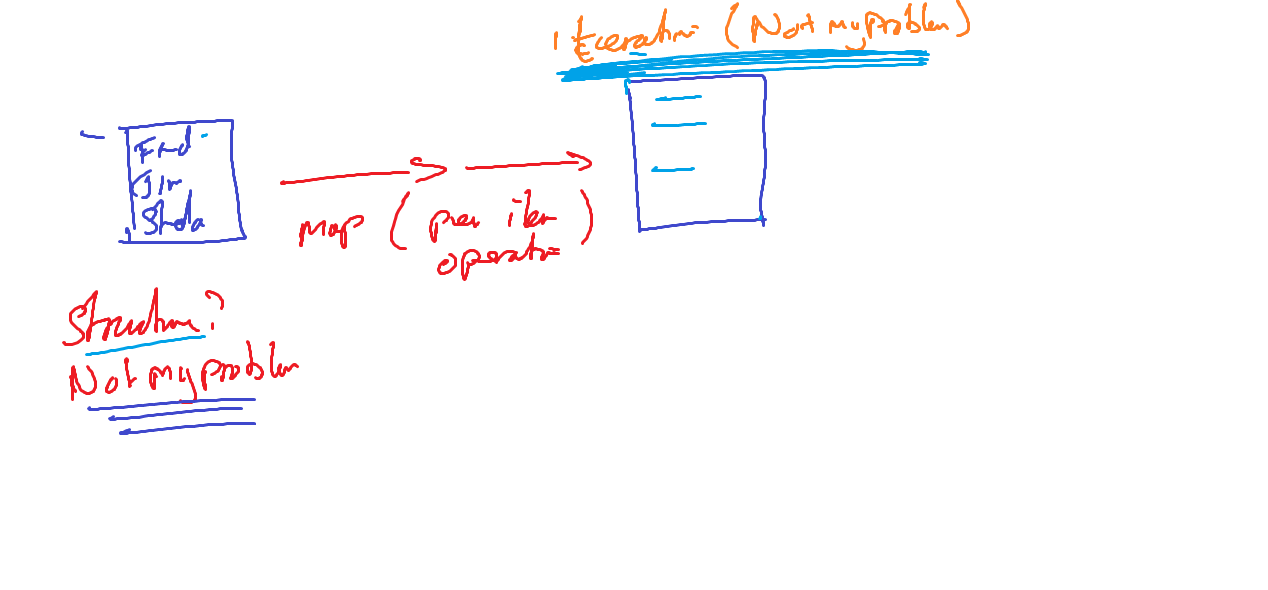 iteration (Not my problem)
Fred
Jim
Sheila
map (per item
operation)
Structure?
Not my problem